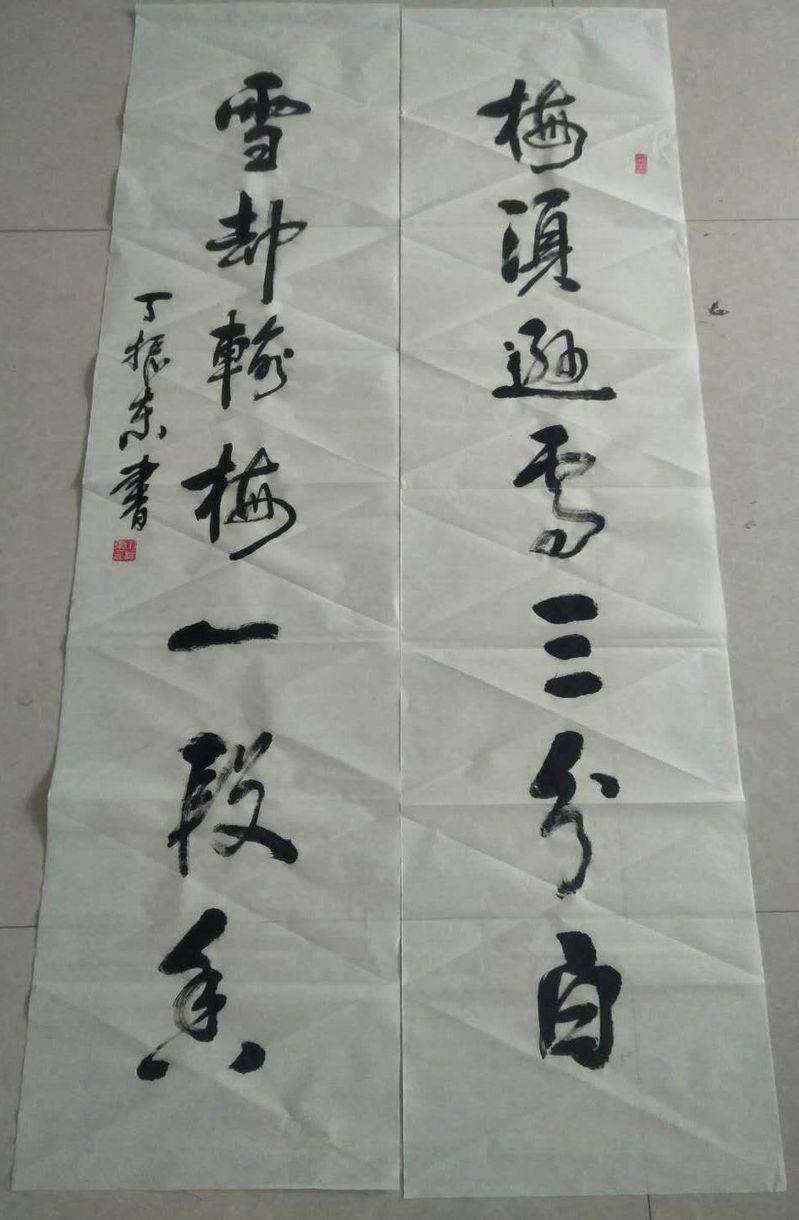 梅須遜雪三分白
雪却輸梅一段香
丁振东書